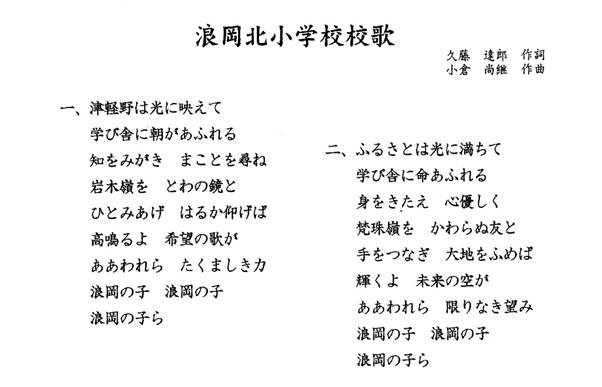 浪岡北小学校校歌
久藤 達郎 作詞
小倉 尚継 作曲
一、津軽野は光に映えて
学び舎に朝があふれる
知をみがき まことを尋ね
岩木嶺を とわの鏡と
ひとみあげ はるか仰げば
高鳴るよ 希望の歌が
ああわれら たくましき力
浪岡の子 浪岡の子
浪岡の子ら
二、ふるさとは光に満ちて
学び舎に命あふれる
身をきたえ 心優しく
梵珠嶺を かわらぬ友と
手をつなぎ 大地をふめば
輝くよ 未来の空が
ああわれら 限りなき望み
浪岡の子 浪岡の子
浪岡の子ら